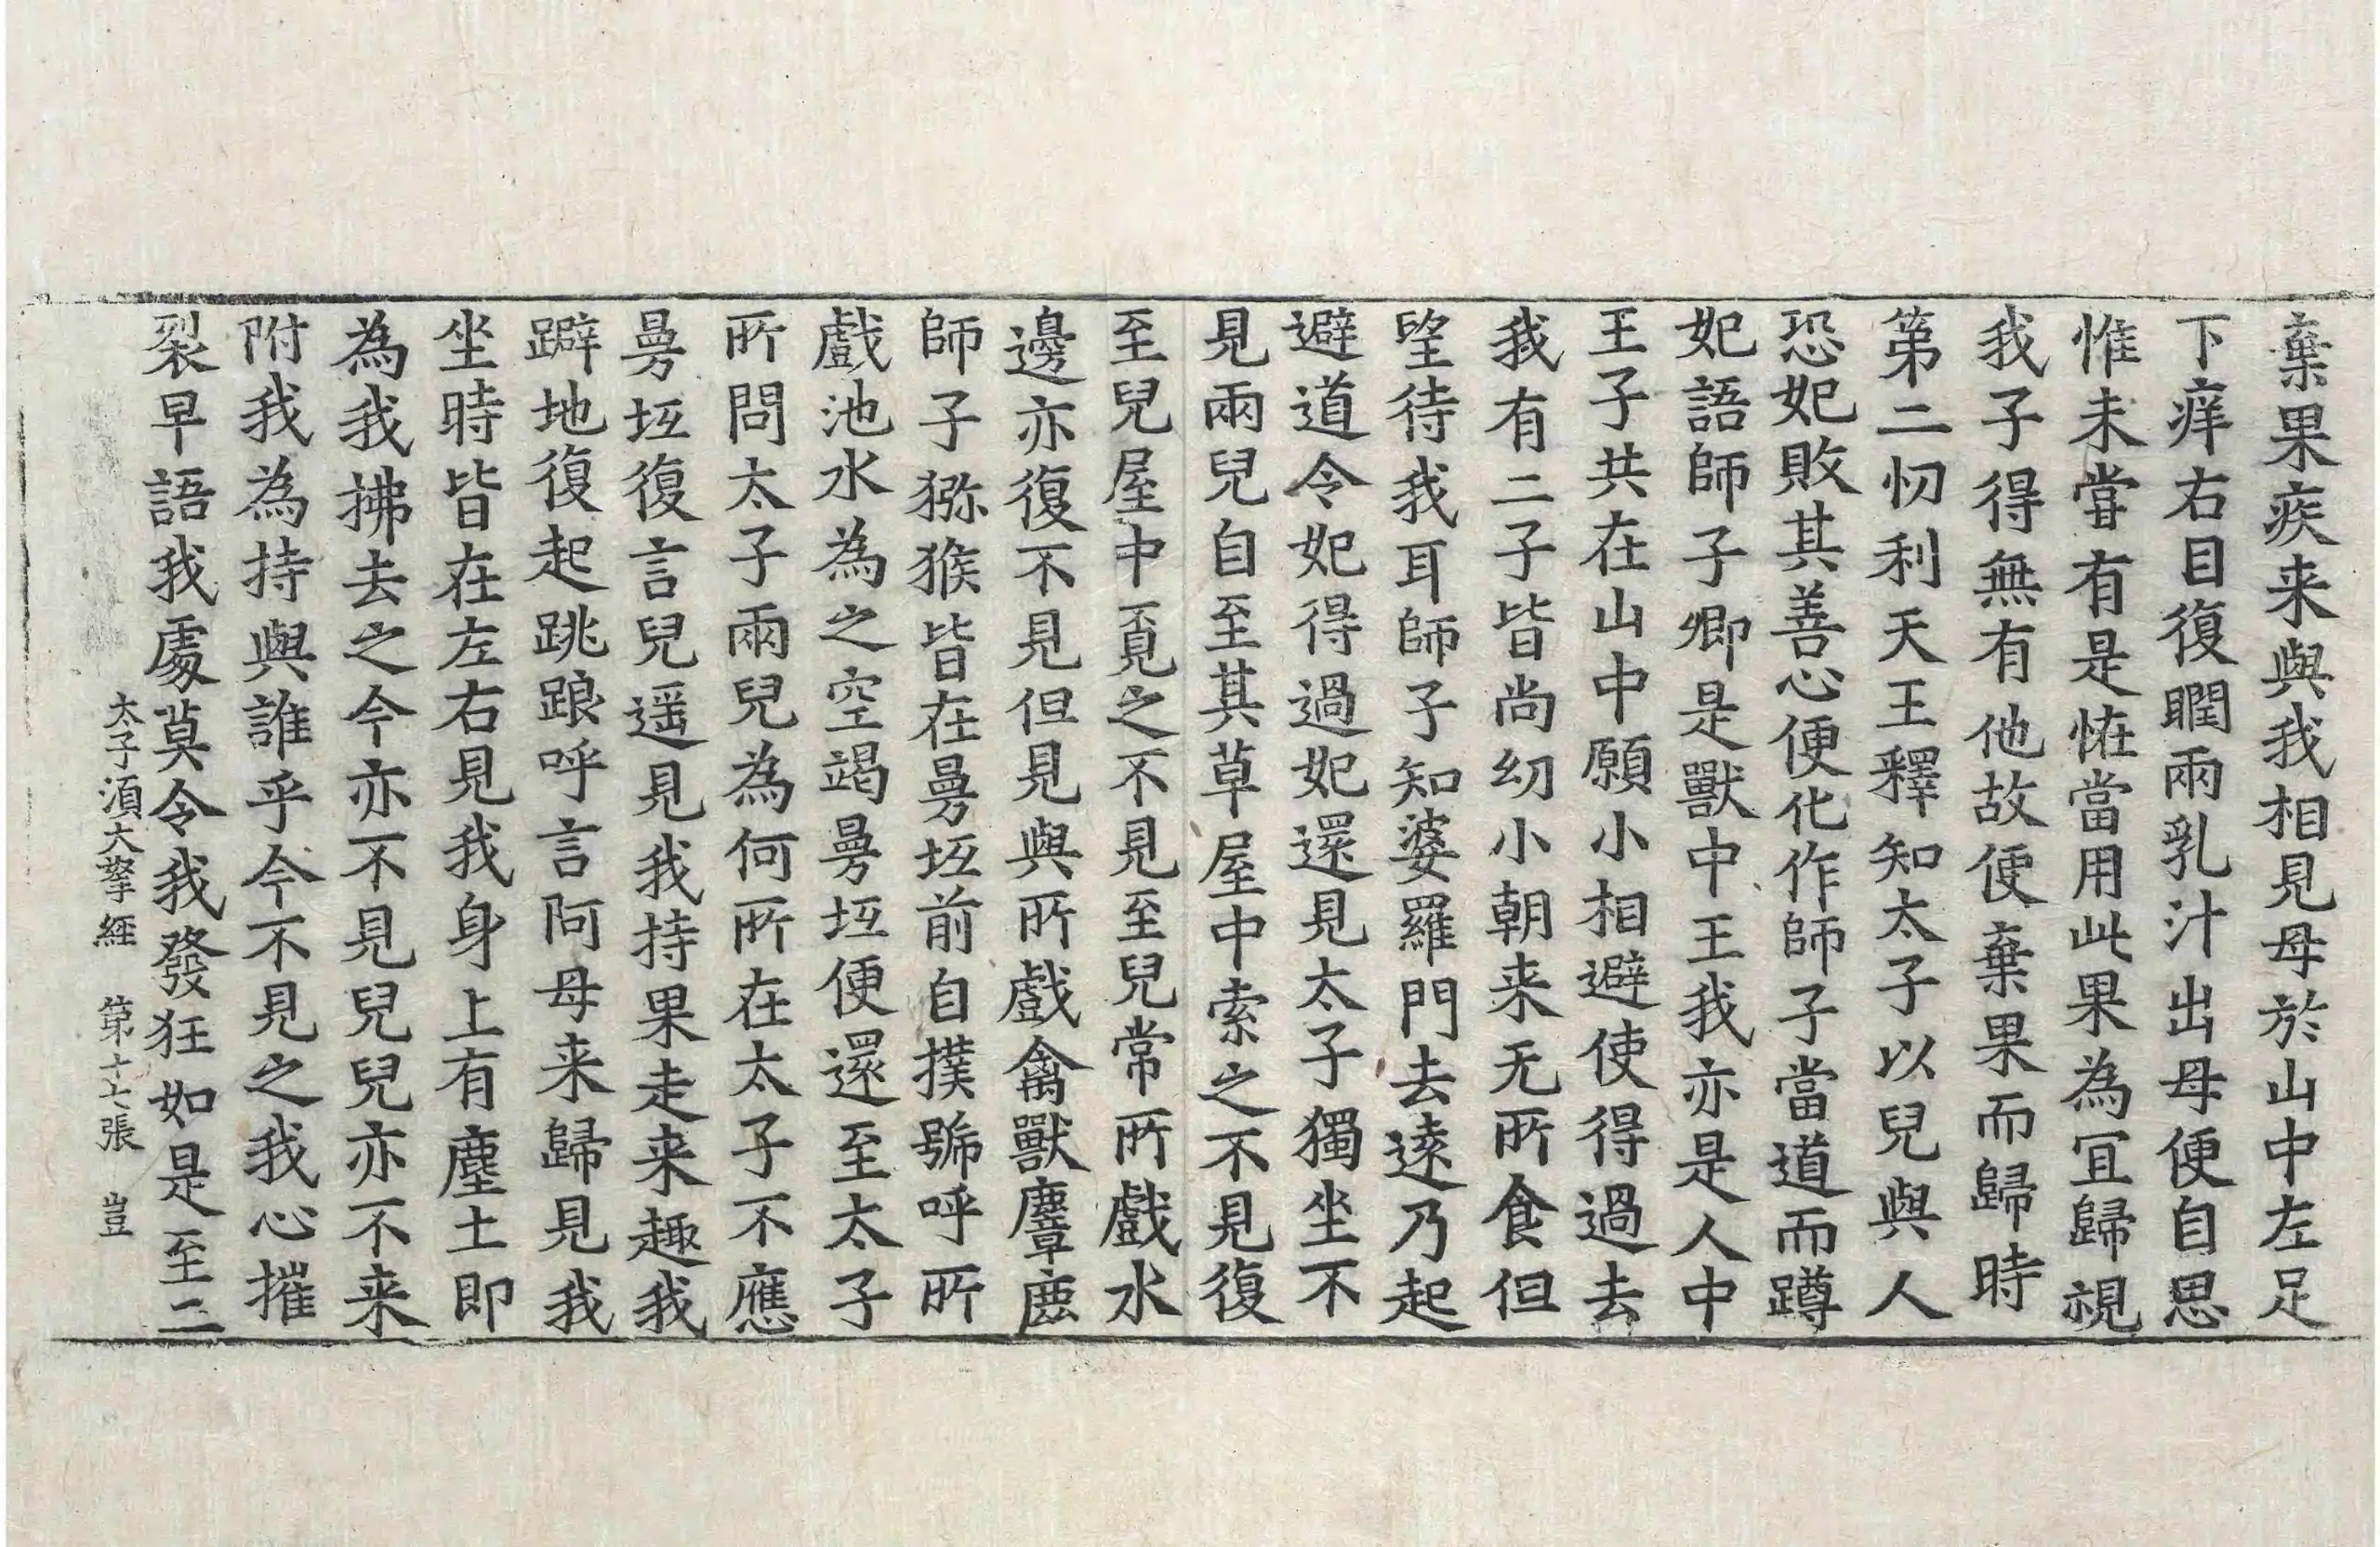 棄果疾来與我相見母於山中左足
下痒右目復瞤兩乳汁出母便自思
惟未甞有是恠當用此果為冝歸視
我子得無有他故便棄果而歸時
第二忉利天王釋知太子以兒與人
恐妃敗其善心便化作師子當道而蹲
妃語師子卿是獸中王我亦是人中
王子共在山中願小相避使得過去
我有二子皆尚幼小朝来无所食但
望待我耳師子知婆羅門去逺乃起
避道令妃得過妃還見太子獨坐不
見兩兒自至其草屋中索之不見復
至兒屋中覓之不見至兒常所戲水
邊亦復不見但見與所戲禽獸麞鹿
師子獼猴皆在曼坻前自撲號呼所
戲池水為之空竭曼坻便還至太子
所問太子兩兒為何所在太子不應
曼坻復言兒遥見我持果走来趣我
躃地復起跳踉呼言阿母来歸見我
坐時皆在左右見我身上有塵土即
為我拂去之今亦不見兒兒亦不来
附我為持與誰乎今不見之我心摧
裂早語我處莫令我發狂如是至二
太子湏大拏經 第十七張 豈